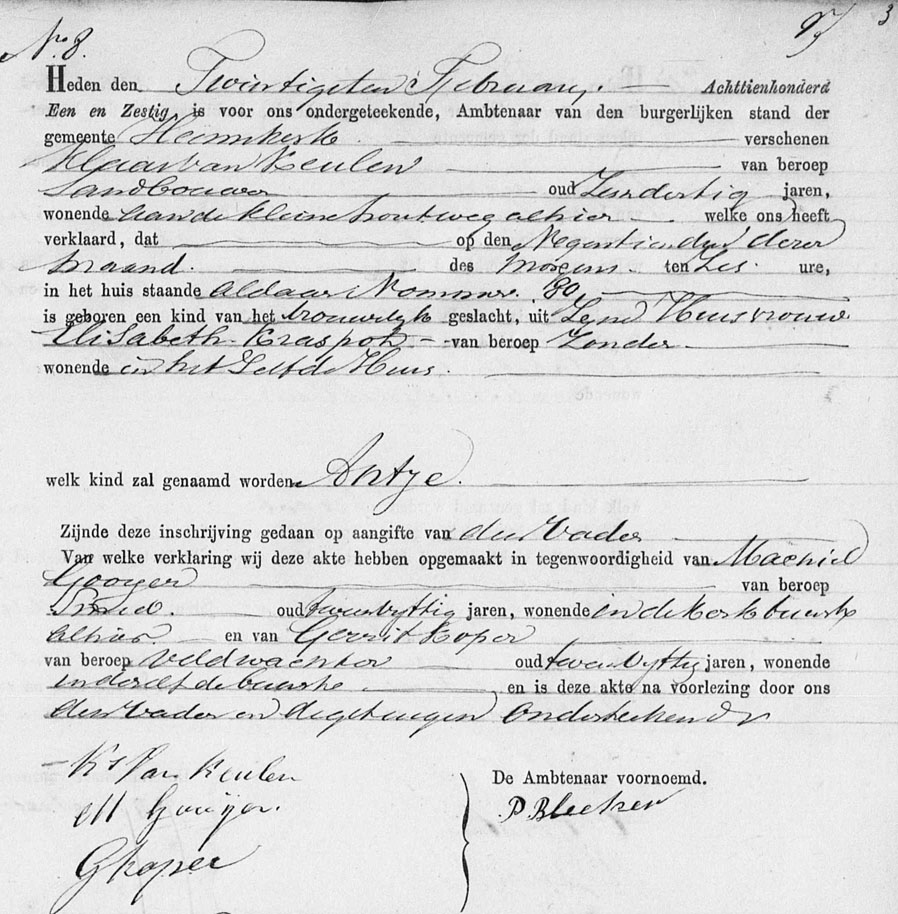 3
No. 8.
Heden den Twintigsten Februarij. Achttienhonderd
Een en Zestig, is voor ons ondergeteekende, Ambtenaar van den burgerlijken stand der
gemeente Heemskerk verschenen
Klaas van Keulen van beroep
Landbouwer oud Zesendertig jaren,
wonende aan de kleine houtweg alhier welke ons heeft
verklaard, dat op den Negentienden dezer
maand. des morgens ten Zes ure,
in het huis staande aldaar Nommer 80,
is geboren een kind van het vrouwelijk geslacht, uit Zijne Huisvrouw
Elisabeth Kraspot van beroep Zonder
wonende in het Zelfde Huis.
welk kind zal genaamd worden Antje.
Zijnde deze inschrijving gedaan op aangifte van den Vader
Van welke verklaring wij deze akte hebben opgemaakt in tegenwoordigheid van Machiel
Gooijer van beroep
Smid. oud twee Vyftig jaren, wonende in de Kerkbuurt
alhier en van Gerrit Koper
van beroep veldwachter oud twee Vyftig jaren, wonende
in dezelfde buurt en is deze akte na voorlezing door ons
den Vader en de getuigen Onderteekend
Ks Van Keulen
M Gooijer.
G Koper
De Ambtenaar voornoemd.
P Bleeker